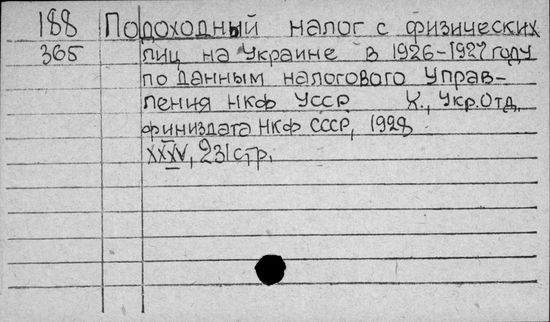 188 Подоходный налог с физических
365 лиц на Украине в 1926-1927 году
по данным налогового Управ-
ления НКФ УССР Х., Укр. Отд.
финиздата НКФ СССР, 1928
XXXV, 231 стр.